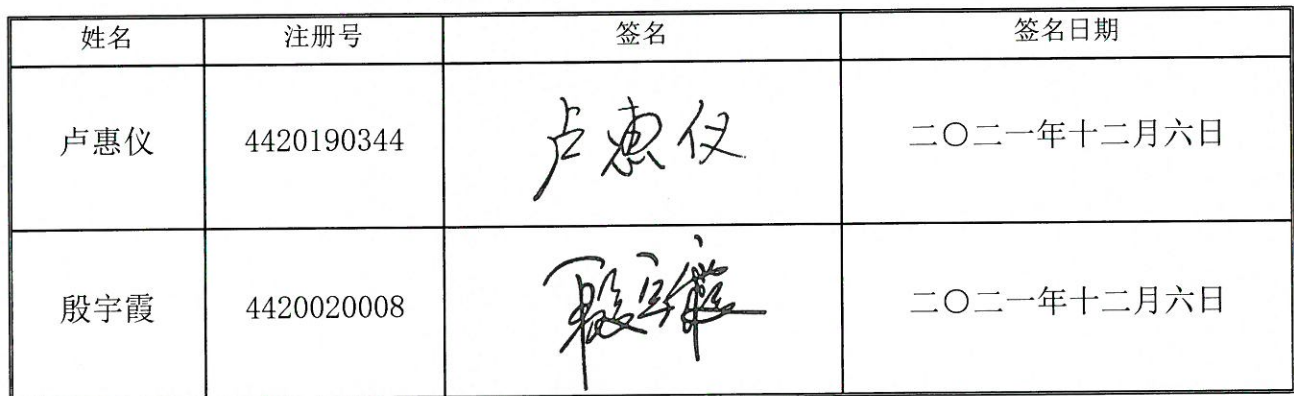 姓名 注册号 签名 签名日期
卢惠仪 4420190344 卢惠仪 二〇二一年十二月六日
殷宇霞 4420020008 殷宇霞 二〇二一年十二月六日